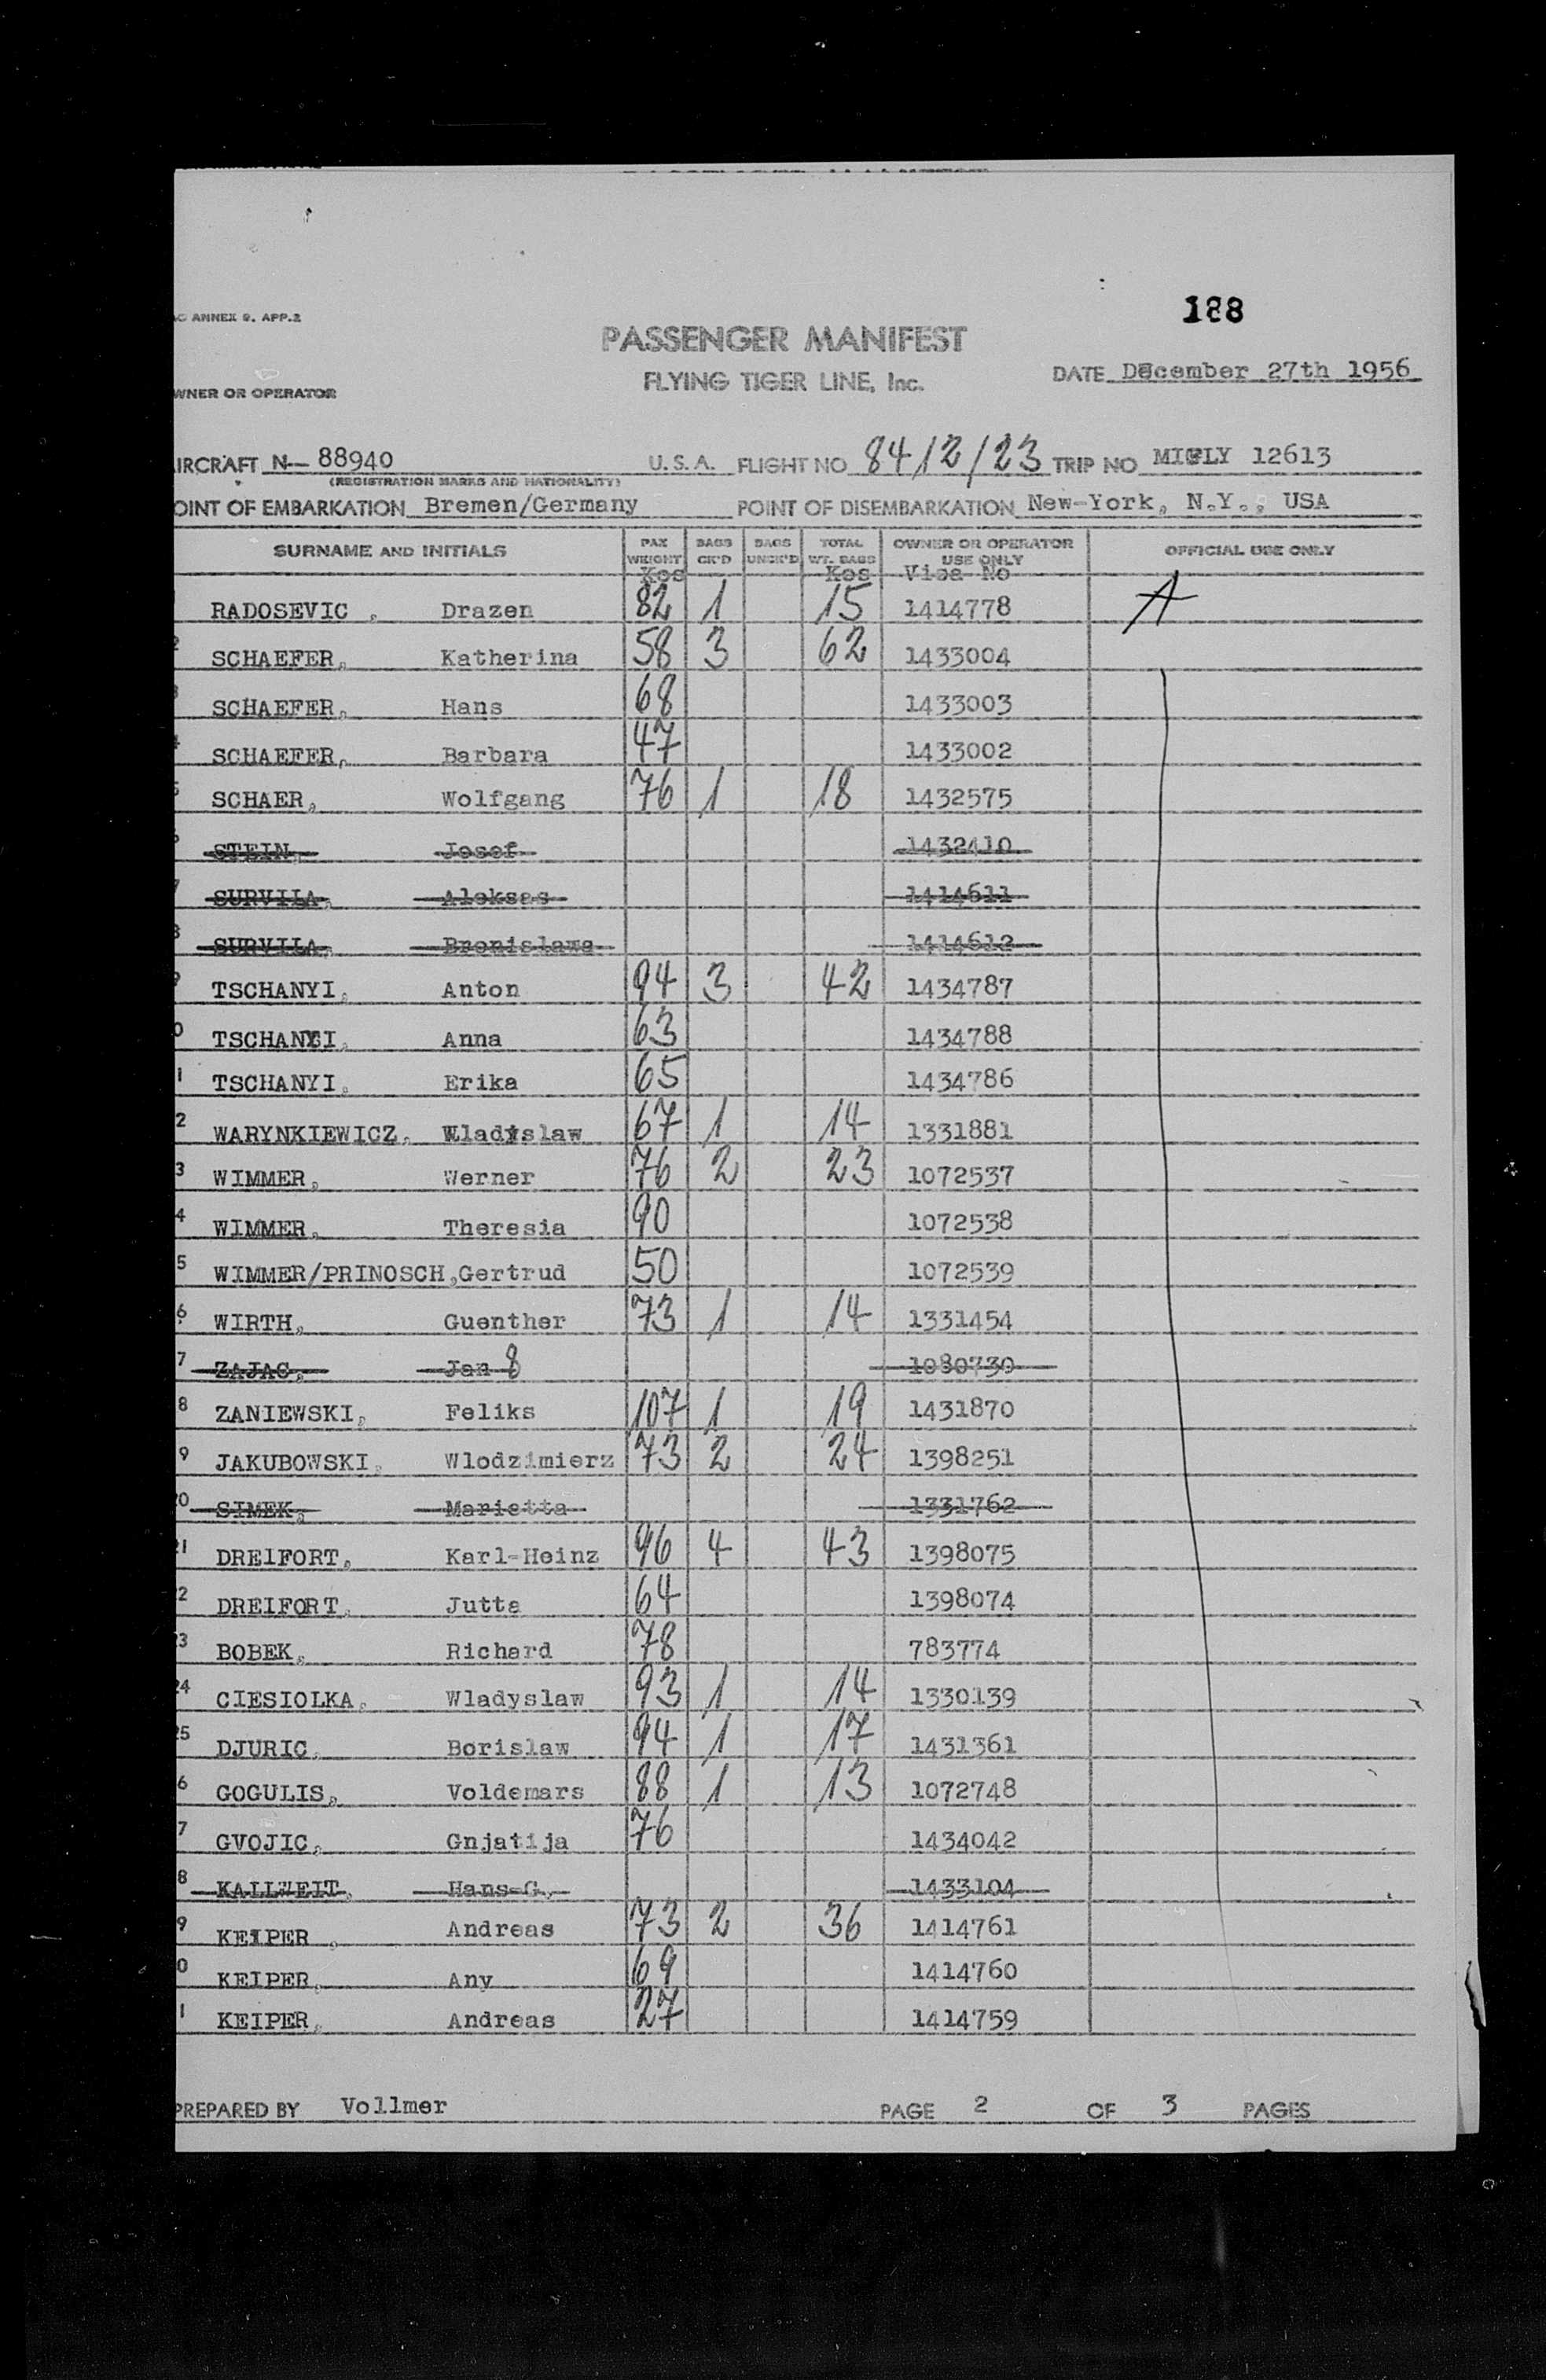 188
ANNEX 9. APP.2
PASSENGER MANIFEST
FLYING TIGER LINE, Inc.
DATE December 27th 1956
WNER OR OPERATOR
IRCRAFT N— 88940 U.S.A. FLIGHT NO 84/2/23 TRIP NO MIFLY 12613
(REGISTRATION MARKS AND NATIONALITY)
OINT OF EMBARKATION Bremen/Germany POINT OF DISEMBARKATION New-York, N.Y., USA
SURNAME AND INITIALS PAX WEIGHT BAGS CK'D BAGS UNCK'D TOTAL WT. BAGS OWNER OR OPERATOR USE ONLY OFFICIAL USE ONLY
Kos Kos Visa No
RADOSEVIC, Drazen 82 1 15 1414778 A
2 SCHAEFER, Katherina 58 3 62 1433004
3 SCHAEFER, Hans 68 1433003
4 SCHAEFER, Barbara 47 1433002
5 SCHAER, Wolfgang 76 1 18 1432575
6 STEIN, Josef 1432410
7 SURVILA, Aleksas 1414611
8 SURVILA, Bronislawa 1414612
9 TSCHANYI, Anton 94 3 42 1434787
0 TSCHANYI, Anna 63 1434788
1 TSCHANYI, Erika 65 1434786
2 WARYNKIEWICZ, Wladislaw 67 1 14 1331881
3 WIMMER, Werner 76 2 23 1072537
4 WIMMER, Theresia 90 1072538
5 WIMMER/PRINOSCH, Gertrud 50 1072539
6 WIRTH, Guenther 73 1 14 1331454
7 ZAJAC, Jan 8 1080730
8 ZANIEWSKI, Feliks 107 1 19 1431870
9 JAKUBOWSKI, Wlodzimierz 73 2 24 1398251
20 SIMEK, Marietta 1331762
21 DREIFORT, Karl-Heinz 96 4 43 1398075
2 DREIFORT, Jutta 64 1398074
23 BOBEK, Richard 78 783774
24 CIESIOLKA, Wladyslaw 93 1 14 1330139
25 DJURIC, Borislaw 94 1 17 1431361
6 GOGULIS, Voldemars 88 1 13 1072748
7 GVOJIC, Gnjatija 76 1434042
8 KALLWEIT, Hans-G. 1433104
9 KEIPER, Andreas 73 2 36 1414761
0 KEIPER, Any 69 1414760
1 KEIPER, Andreas 27 1414759
PREPARED BY Vollmer PAGE 2 OF 3 PAGES